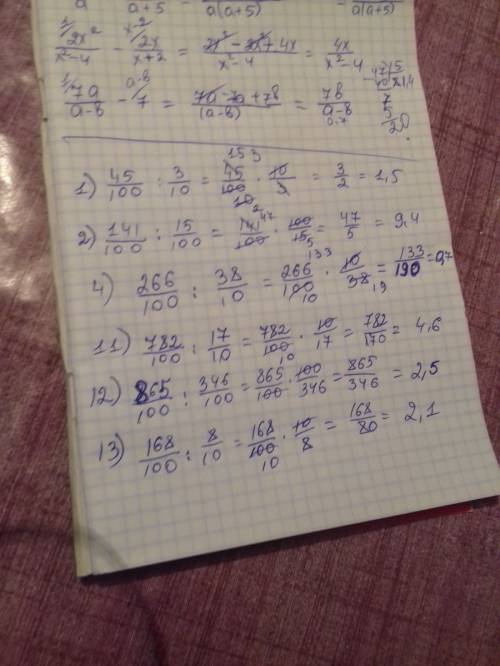 a   a+5   a(a+5)   a   a(a+5)
2x²/(x²-4) - 2x/(x+2) = (2x² - 2x² + 4x)/(x²-4) = 4x/(x²-4)
7a/(a-b) - 7 = (7a - 7a + 7b)/(a-b) = 7b/(a-b)
1) 45/100 : 3/10 = 45/100 · 10/3 = 3/2 = 1,5
2) 141/100 : 15/100 = 141/100 · 100/15 = 47/5 = 9.4
4) 266/100 : 38/10 = 266/100 · 10/38 = 133/190 = 0,7
11) 782/100 : 17/10 = 782/100 · 10/17 = 782/170 = 4,6
12) 865/100 : 346/100 = 865/100 · 100/346 = 865/346 = 2,5
13) 168/100 : 8/10 = 168/100 · 10/8 = 168/80 = 2,1